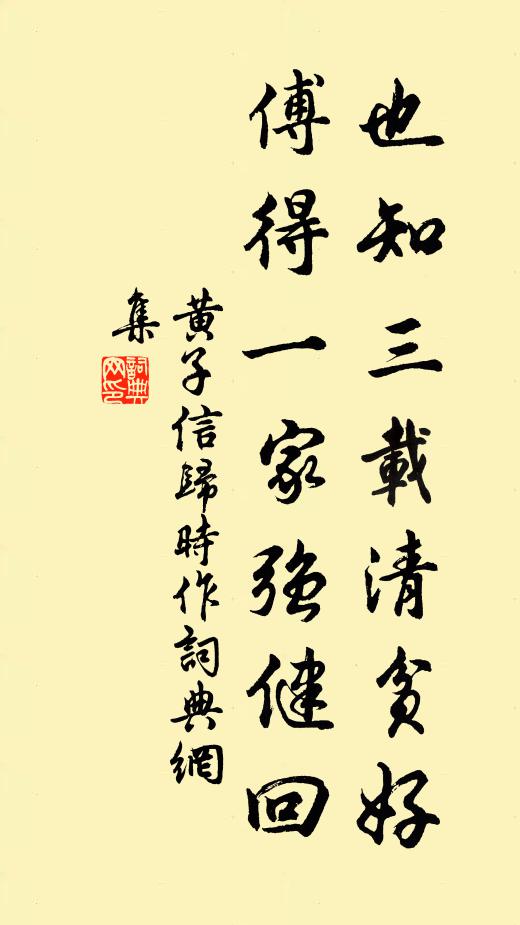 也知三載清貧好
傅得一家強健回
黃子信歸時作詞典網
集
詞典
網印